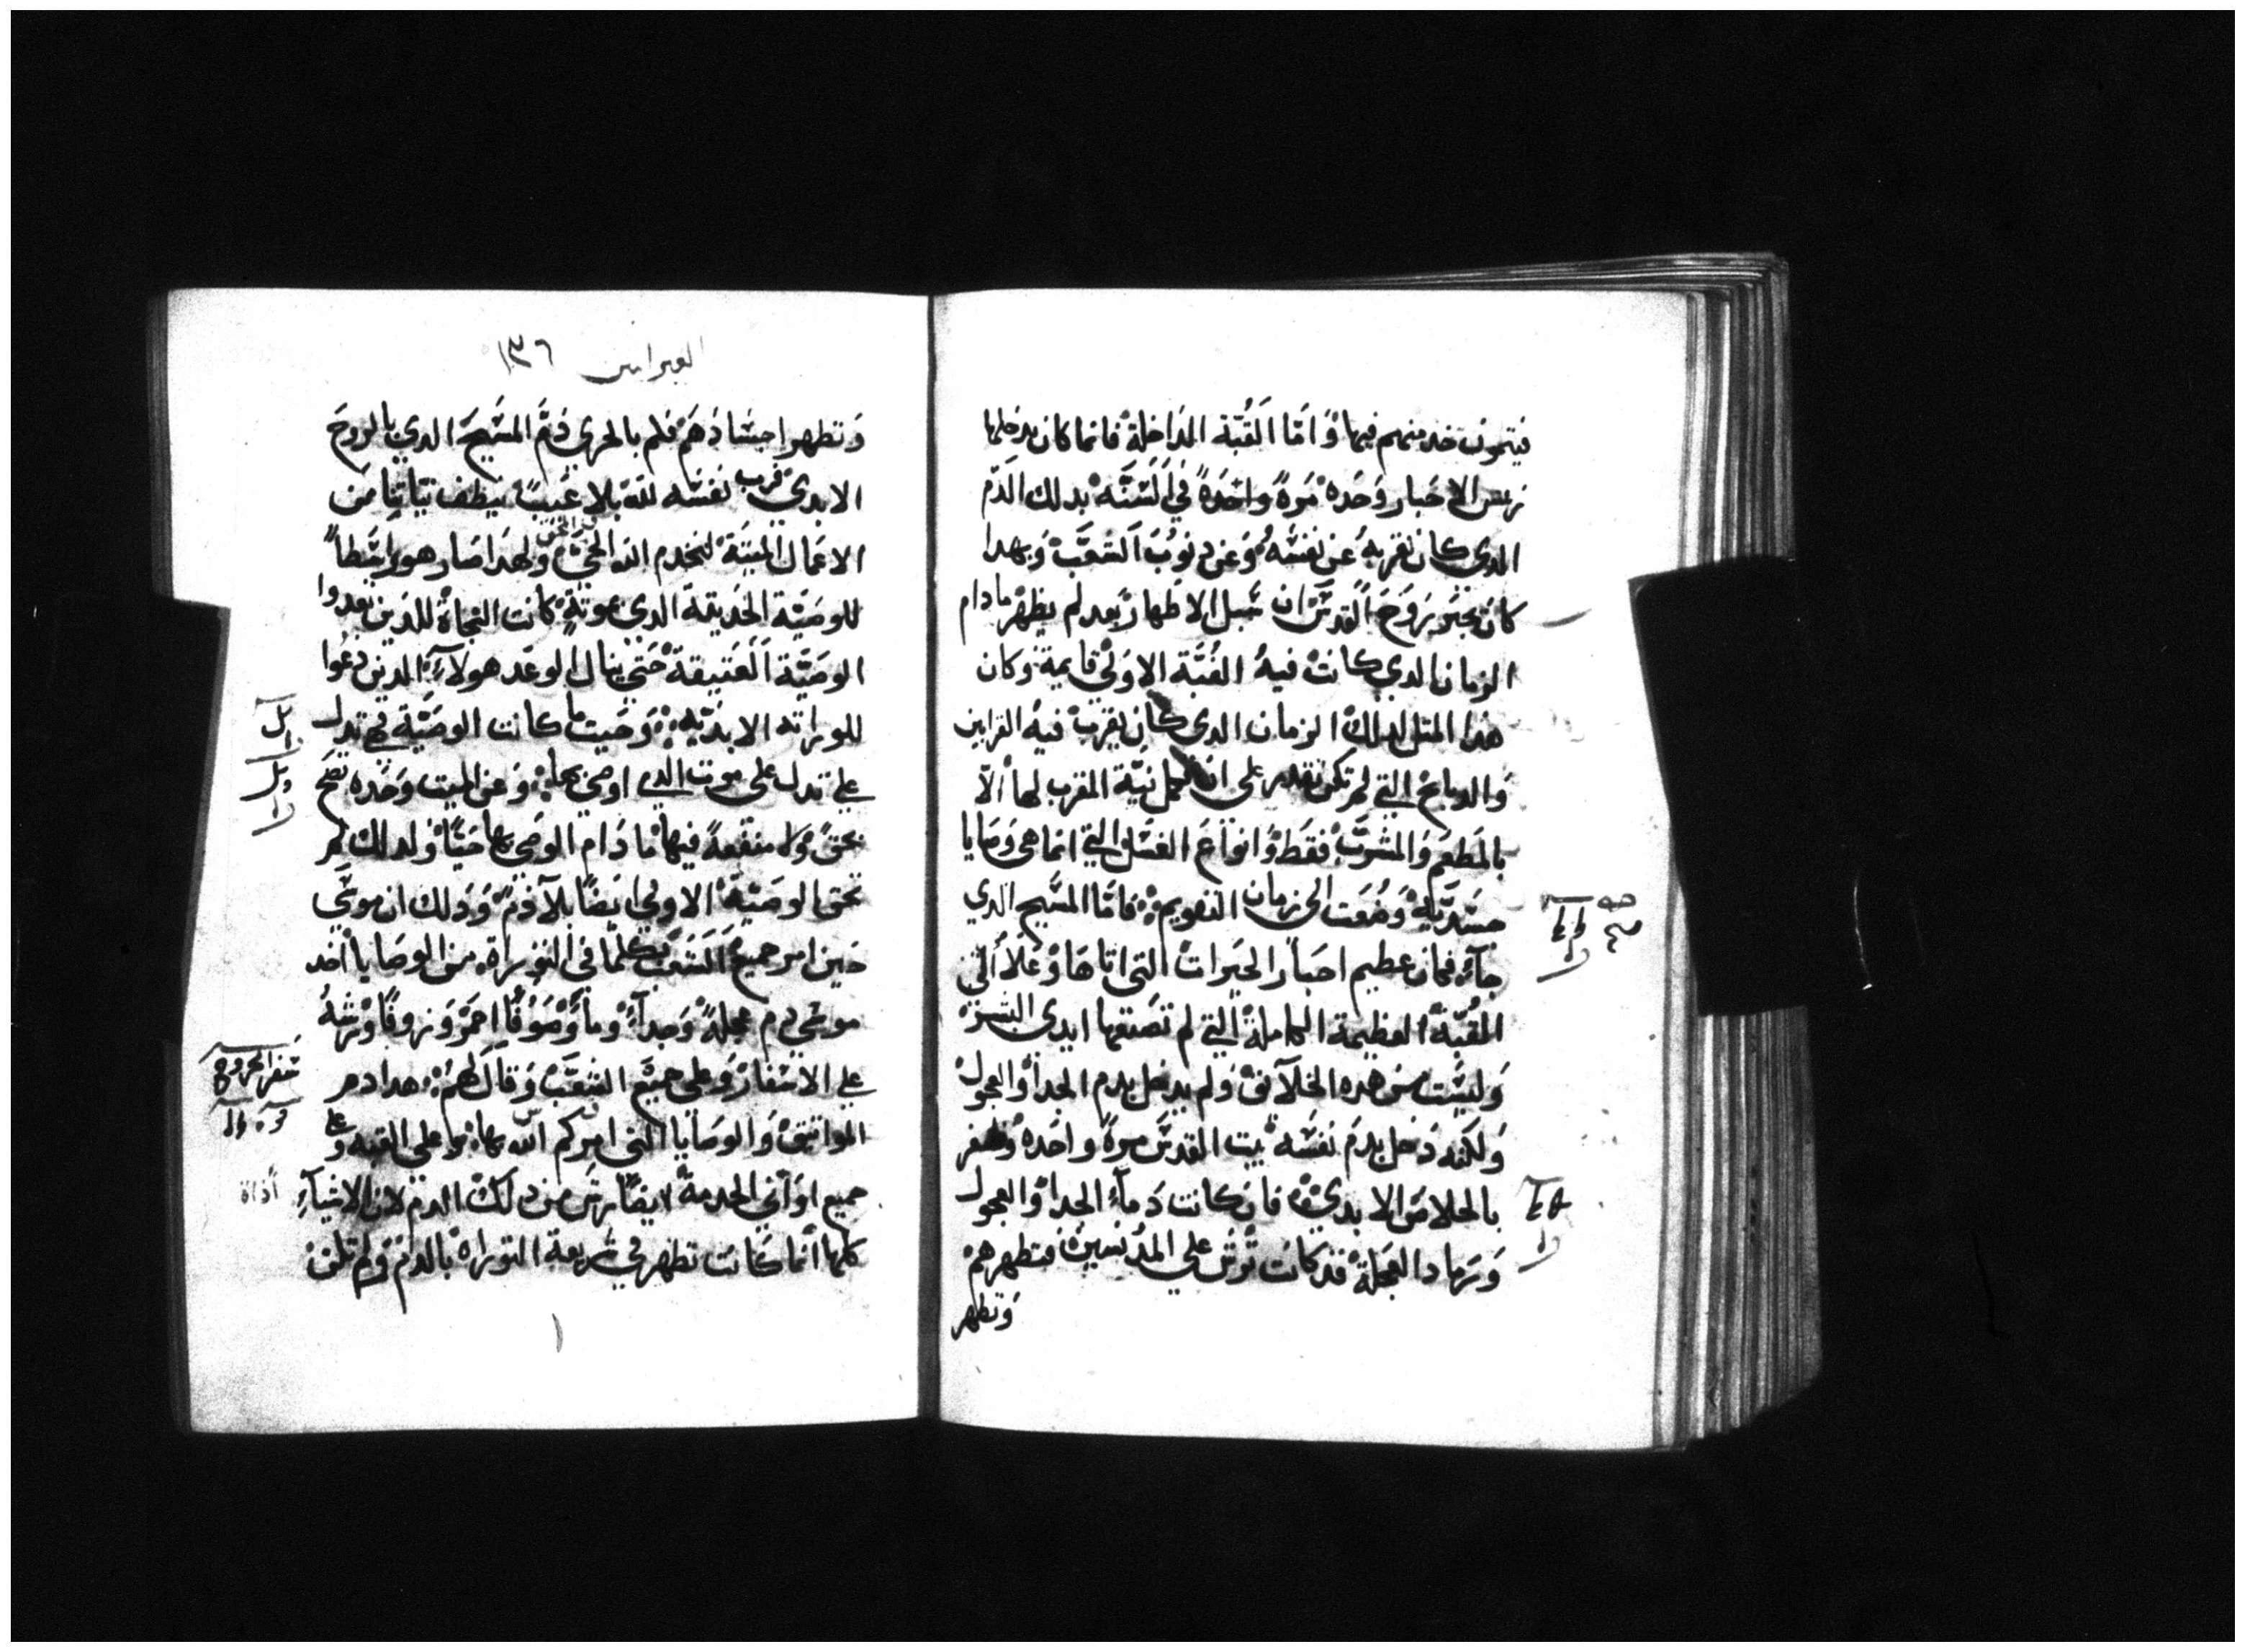 فيتمون خدمتهم فيها وَامّا القُبّة الدَاخلة فانما كان يدخلها
ريس الاحبار وَحَده مَرةً واحدَةً في السّنَّه بدلك الدّم
الدي كان يقربهُ عَن نفسَّهُ وَعَن دنوبُ الشعَبَّ وَبهدا
كانَ يخبر روَحَ القدسَّ ان سَبل الاطهار بَعد لم يظهرْ ما دام
الزمان الدي كانتْ فيهُ القُبَّة الاوَلي قايمة وكان
هذا المتل لدلكْ الزمان الدي كان يقربْ فيهُ القرابين
وَالدبايح التي لم تكن تقدر على ان تكمل نيّة المقرب لها الّا
بالمَطعَم وَالمشرَبْ فقَط وَانواعَ الغسَل التي انما هى وَصَايا
جسَّدَيّةْ وَضُعَت الى زمان التقويم فامّا المسَّيح الدي
جآء فكان عظيم احبَار الخيرات التى اتاهَا وَ
القُبّة العظيمة الكاملة التي لم تصنعها ايدى البشرْ
وَليسَّت من هده الخلآئقْ وَلم يدخل بدم الجدآ وَالعجول
وَلكنه دَخل بدمَ نفسَّه بيت القدسَّ مرةً واحدهْ وَظفر
بالخلاصَ الابدي فان كانت دَمآء الجدآ وَالعجول
وَرماد العجلةْ قد كانت تُرش على المدنسين فتطهرهمْ
وَتطهر
العبرانيين ١٣٦
وَتطهر اجسَّادَهَمْ فلم بالحرى دَمَّ المسَّيحَ الدي بالروحَ
الابدي قرب نفسَّه للّه بلا عَيبٌ ينظف نيّاتنا مَن
الاعَمال الميتةْ لنخدم اللّه الحيَّ وَلهدَا صَار هو واسَّطاً
للوصَيّة الحَديثة الدى بموتةٍ كانت النجاة للدَين تعدوا
الوصَيّة العَتيقةْ حَتي ينال الوعَد هولآءِ الدين دعَوا
للوراته الابدَيّه وَحَيت ما كانت الوصَيّة فهي تدل
على تدل على موت الدي اوصَى بها وَعَن الميت وَحَده تصَح
تحقّ وَلا منفعةً فيها ما دَام الموصَي بها حَيّاً وَلدلك لم
تحق الوصَيّةْ الاولي ايضَاً بلآ دَمٌ وَدَلك ان موسَّي
حَين امر جميعَ الشعَبْ بكلما فى التوراة من الوصَايا اخد
موسَّي دم عجلةً وَجدآءً وَمآءً وَصَوُفاً احمَرْ وَزوفاً وَرشهُ
على الاسَّفار وَعلى جميَعَ الشعَبّْ وَقالَ لَهمْ هدا دم
المواثيقْ وَالوصَايا التى امركم اللّه بها وَ على القبه وَعلى
جميع اوَاني الخدمةْ ايضَاً رشَ من دلكْ الدم لان الاشيآءِ
كلها انما كانت تطهر في شَريعة التوراةْ بالدمْ وَلم تكن
سَفر الخروج
أداة